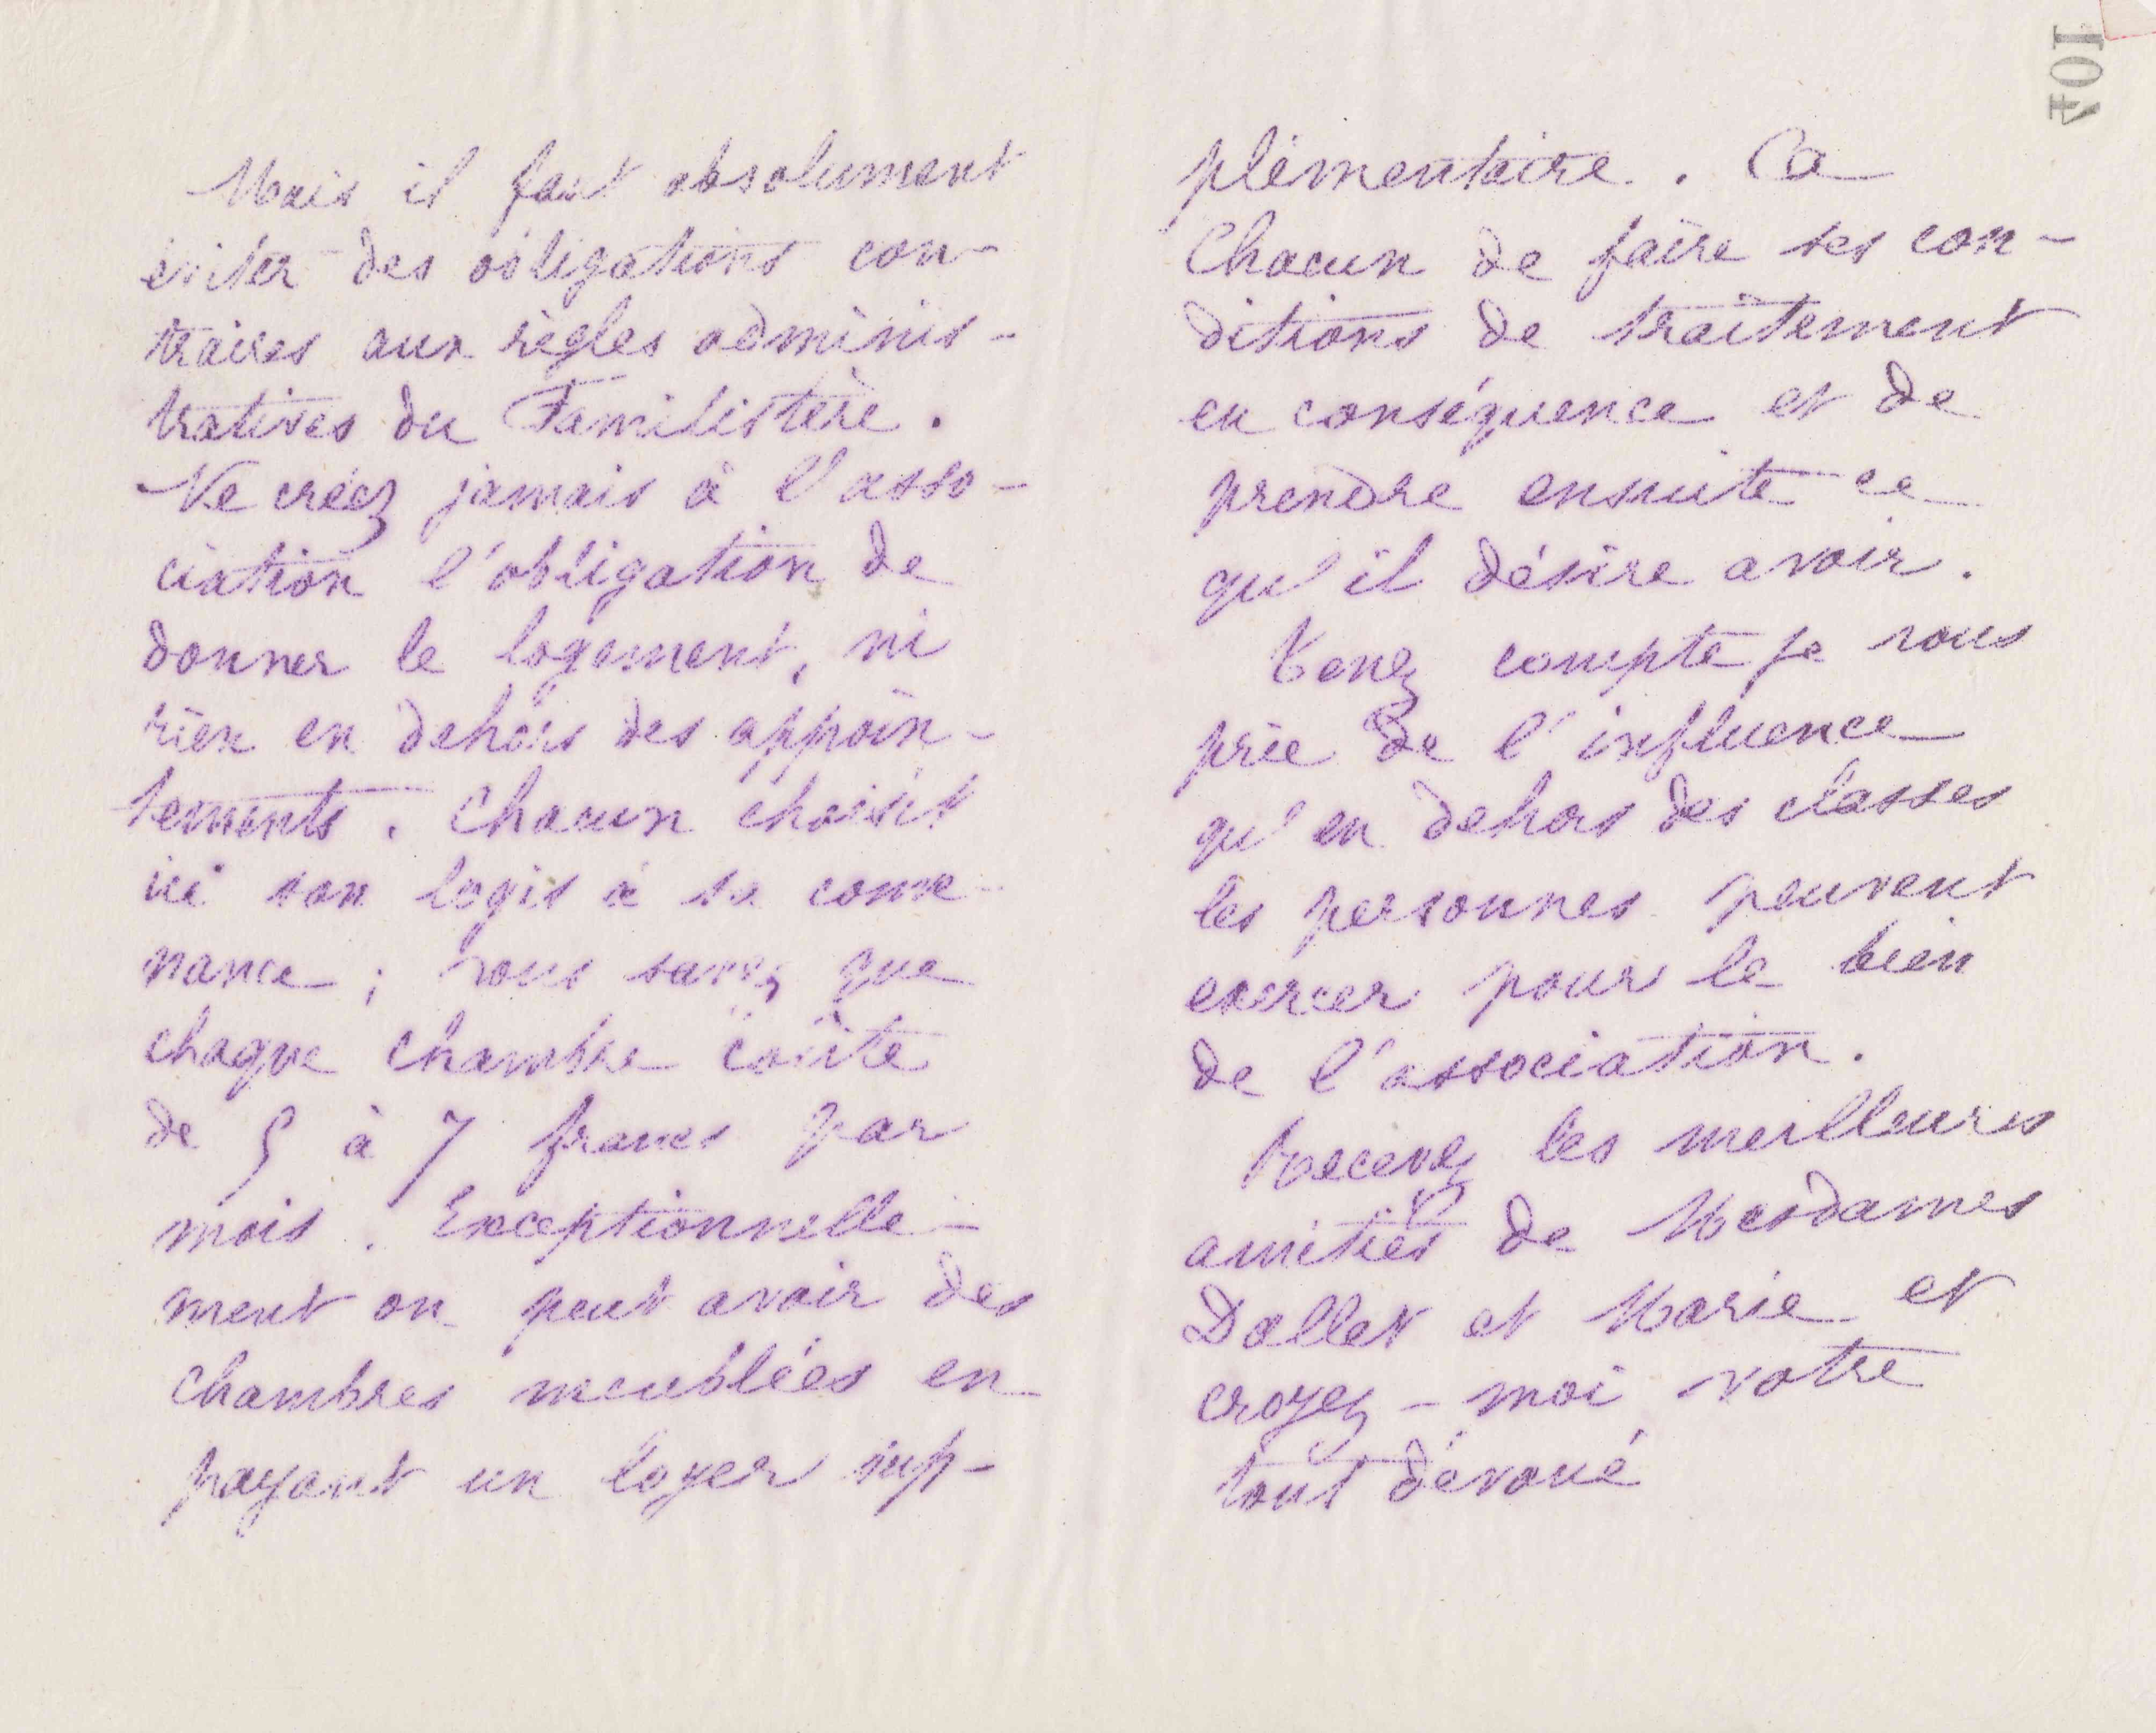 Mais il faut absolument
éviter des obligations con-
traires aux règles adminis-
tratives du Familistère.
Ne créez jamais à l'asso-
ciation l'obligation de
donner le logement, ni
rien en dehors des appoin-
tements. Chacun choisit
ici son logis à sa conve-
nance ; vous savez que
chaque chambre coûte
de 5 à 7 francs par
mois. Exceptionnelle-
ment on peut avoir des
chambres meublées en
payant un loyer sup-
plémentaire. Ca
Chacun de faire ses con-
ditions de traitement
en conséquence et de
prendre ensuite ce
qu'il désire avoir.
Tenez compte je vous
prie de l'influence
qu'en dehors des classes
les personnes peuvent
exercer pour le bien
de l'association.
Recevez les meilleures
amitiés de Mesdames
Dallet et Marie et
croyez-moi votre
tout dévoué
404